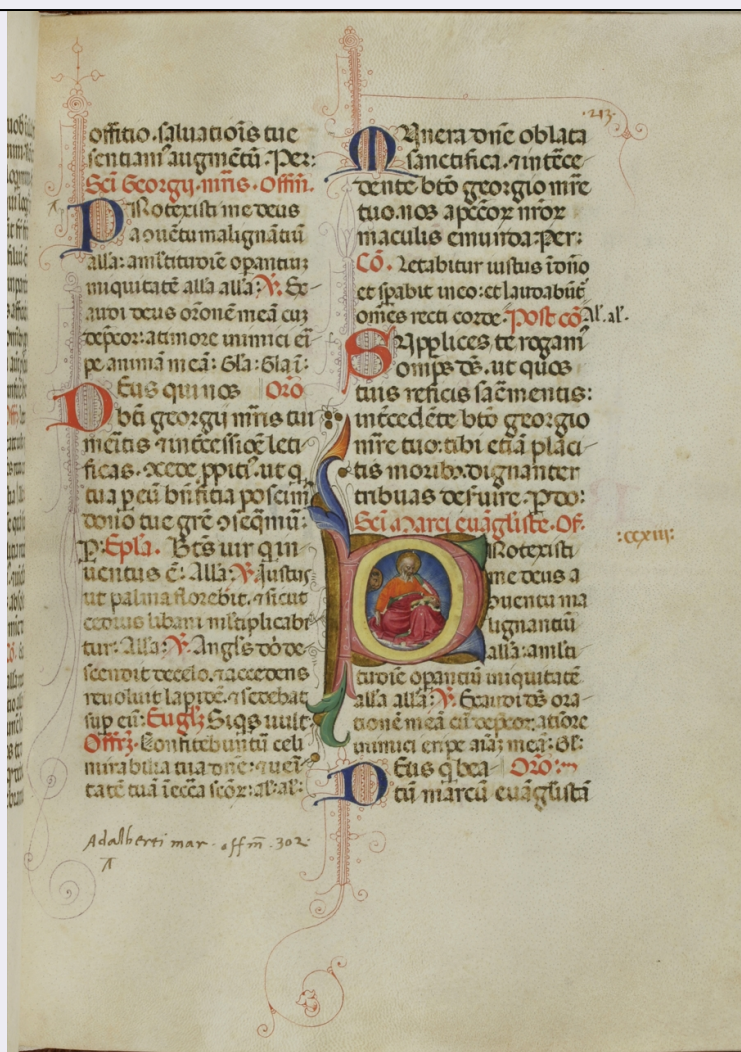 offitio. saluatiõis tue
sentiam augmẽtũ. Per:
Scĩ Georgij. mr̃is. Offm̃.
PRotexisti me deus
a cõuẽtu malignãtiũ
alła: a mĺtitudiẽ operantiuʒ
iniquitatẽ alła alła: ℣. Ex-
audi deus or̃onẽ meã cuʒ
dep̃cor: a timore inimici eri
pe animã meã: Gl̃a: Gl̃a i:
DEus qui nos Or̃o
bt̃i georgij mr̃is tui
meritis ⁊ intercessiõe leti-
ficas. ꝯcede ꝓpiti9. ut q
tua ꝑ eũ bñfitia poscim9
dono tue gr̃e ꝯseqm̃ur:
P: Ep̃la. Bt̃s uir q in-
uentus ẽ: Alla: ℣. Justus
ut palma florebit. ⁊ sicut
cedrus libani mĺtiplicabi
tur: Alla: ℣. Angl̃s dñi de-
scendit de celo. ⁊ accedens
reuoluit lapidẽ. ⁊ sedebat
sup eũ: Eugl̃ʒ Siqs uult
Offrʒ. Confitebuntũ celi
mirabilia tua dñe: ⁊ ueri
tatẽ tuã ĩ ecc̃a scõꝝ: al̃. al̃:
Adalberti mar. offm̃. 302.
.213.
MUnera dñe oblata
sanctifica. ⁊ interce-
dente bt̃o georgio mr̃e
tuo. nos a pecc̃oꝝ nr̃oꝝ
maculis emunda: Per:
Cõ. Letabitur iustus ĩ dño
et sꝑabit in eo: et laudabũt
om̃es recti corde. Post cõ Al. al.
SUpplices te rogam9
om̃ps d̃s. ut quos
tuis reficis sac̃mentis:
intercedẽte bt̃o georgio
mr̃e tuo: tibi etiã placi-
tis morib9. dignanter
tribuas deseruire. P do:
Scĩ Marci euãgliste. Of.
:ccxiii:
PRotexisti
me deus a
cõuentu ma
lignantiũ
alła: a mĺti
tudiẽ operantiũ iniquitatẽ
alła alła: ℣. Exaudi d̃s ora-
tionẽ meã cũ dep̃cor: a tiõre
inimici eripe aĩaʒ meã: Gl̃:
DEus q̃ bea- Or̃o:
tũ marcũ euãglistã